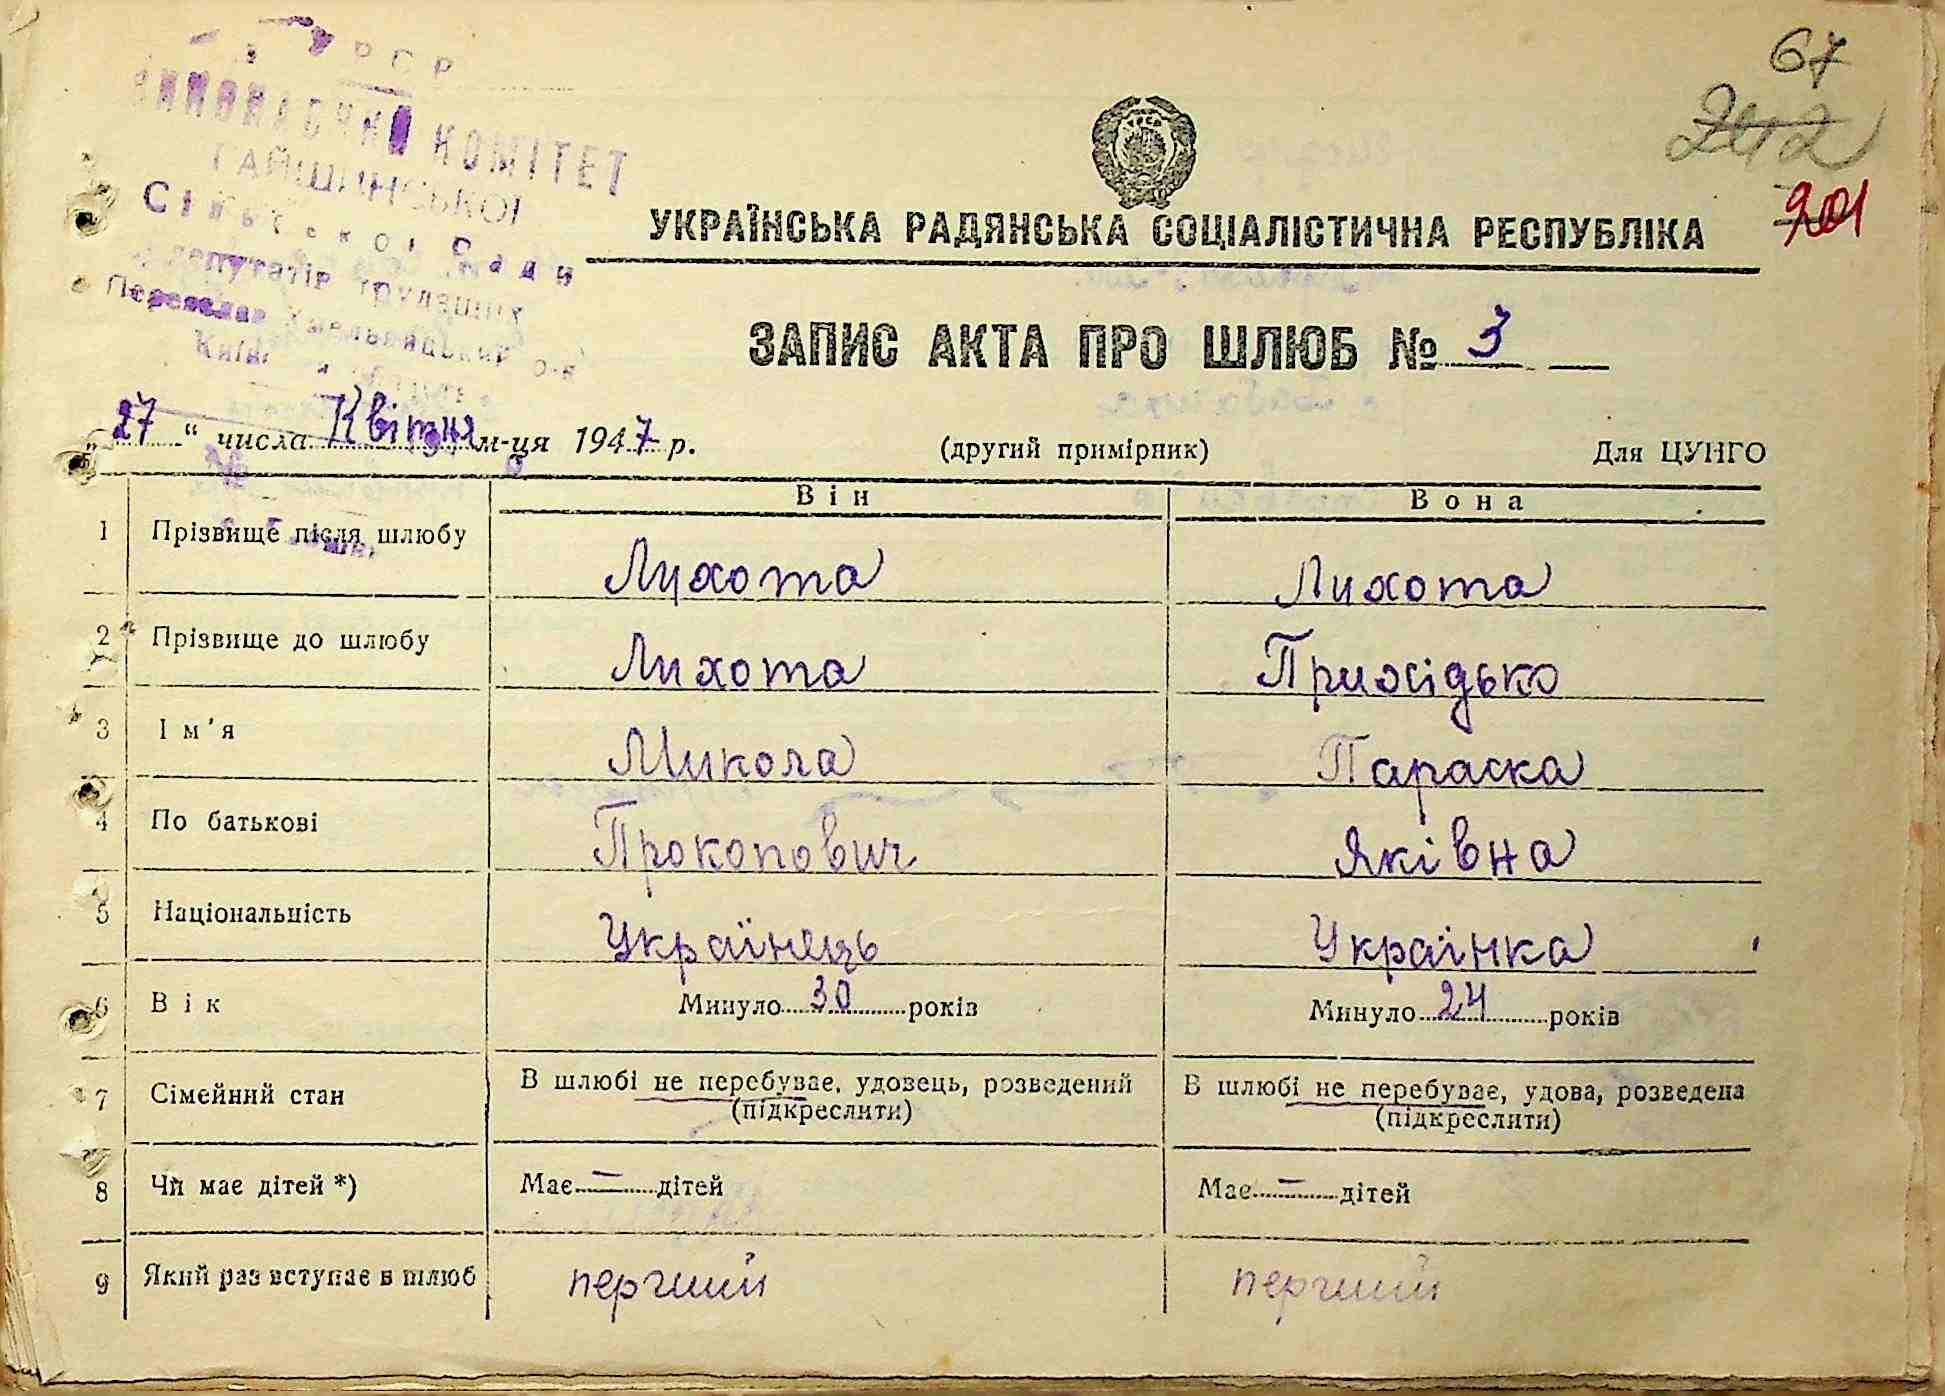 67
242
201
УРСР
ВИКОНАВЧИЙ КОМІТЕТ
ГАЙШИНСЬКОЇ
Сільської Ради
депутатів трудящих
Переяслав Хмельницький р-н
УКРАЇНСЬКА РАДЯНСЬКА СОЦІАЛІСТИЧНА РЕСПУБЛІКА
ЗАПИС АКТА ПРО ШЛЮБ № 3
„27“ числа Квітня м-ця 1947 р. (другий примірник) Для ЦУНГО
Він Вона
1 Прізвище після шлюбу Лихота Лихота
2 Прізвище до шлюбу Лихота Прихідько
3 Ім'я Микола Параска
4 По батькові Прокопович Яківна
5 Національність Українець Українка
6 Вік Минуло 30 років Минуло 24 років
7 Сімейний стан В шлюбі не перебуває, удовець, розведений (підкреслити) В шлюбі не перебуває, удова, розведена (підкреслити)
8 Чи має дітей *) Має — дітей Має — дітей
9 Який раз вступає в шлюб перчий перчий